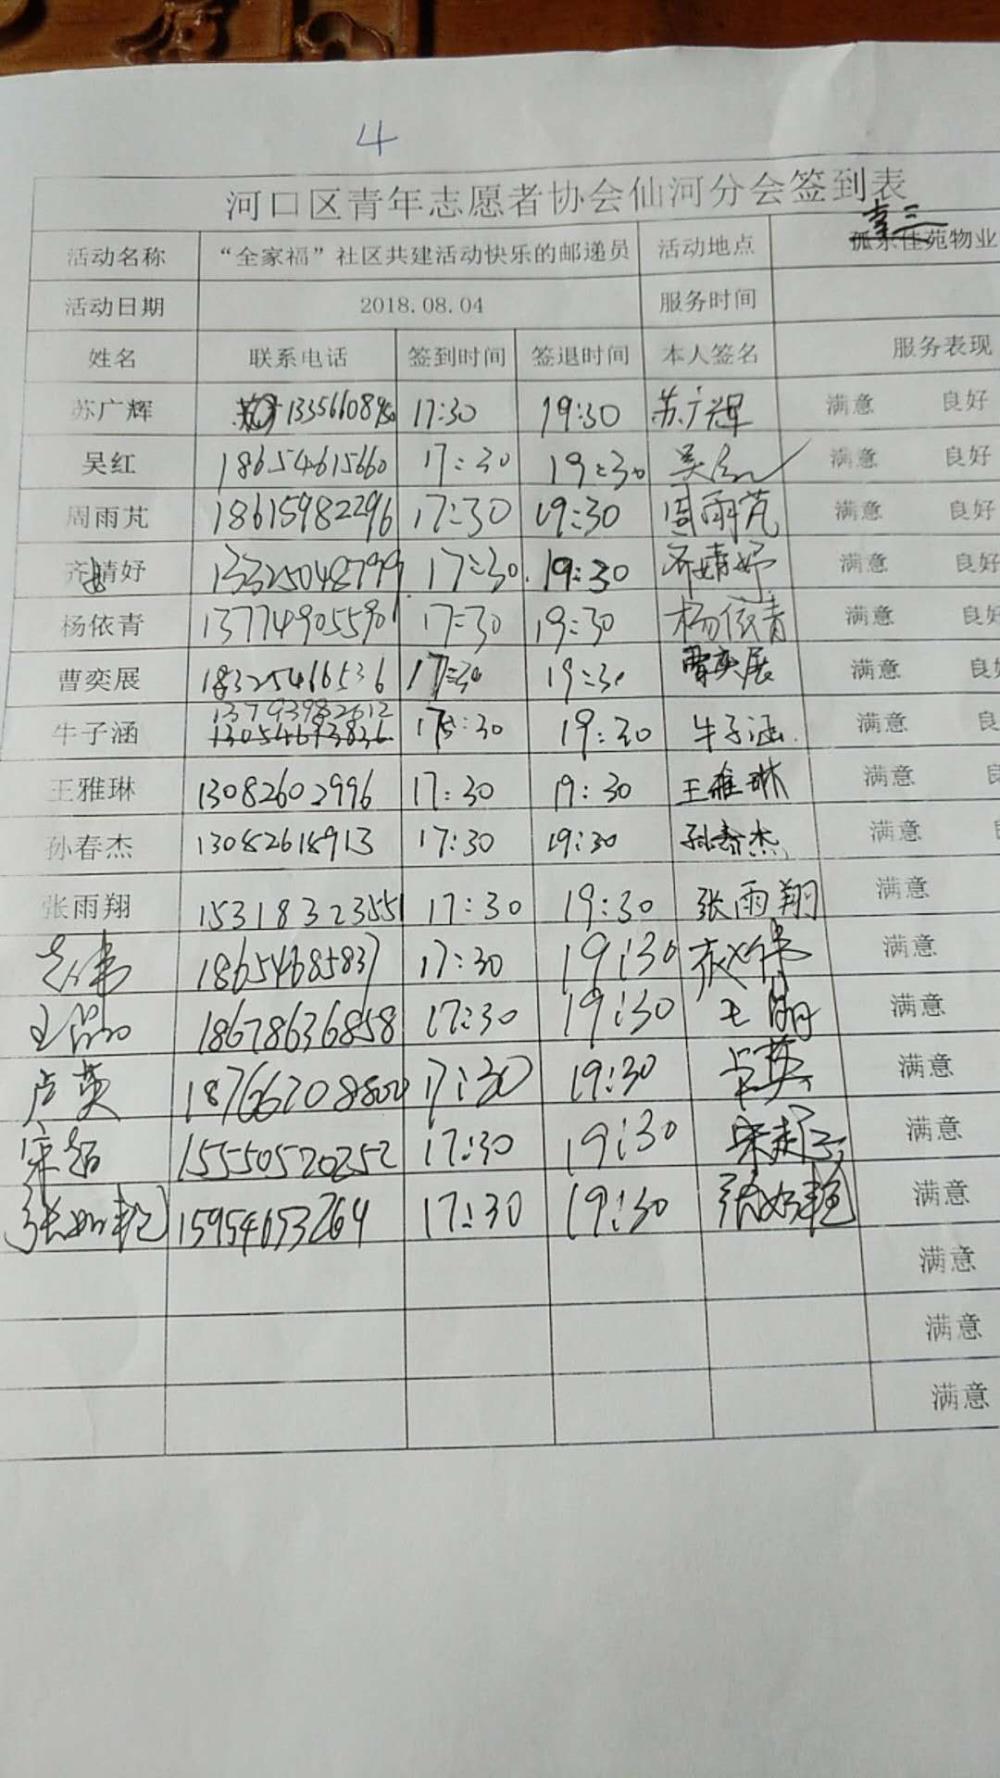 4
河口区青年志愿者协会仙河分会签到表
活动名称 “全家福”社区共建活动快乐的邮递员 活动地点 孤东佳苑物业
活动日期 2018.08.04 服务时间
姓名 联系电话 签到时间 签退时间 本人签名 服务表现
苏广辉 17:30 19:30 苏广辉 满意 良好
吴红 18654615660 17:30 19:30 吴红 满意 良好
周雨芃 18615982296 17:30 19:30 周雨芃 满意 良好
齐婧妤 13325048799 17:30 19:30 齐婧妤 满意 良好
杨依青 13774905590 17:30 19:30 杨依青 满意 良好
曹奕展 18325466536 17:30 19:30 曹奕展 满意 良
牛子涵 13793982612 17:30 19:30 牛子涵 满意 良
王雅琳 13082602996 17:30 19:30 王雅琳 满意
孙春杰 13082618913 17:30 19:30 孙春杰 满意
张雨翔 15318323551 17:30 19:30 张雨翔 满意
18654685837 17:30 19:30 满意
18678636858 17:30 19:30 满意
卢英 18766708800 17:30 19:30 卢英 满意
宋超 15550520252 17:30 19:30 宋超 满意
张如艳 15954653264 17:30 19:30 张如艳 满意
满意
满意
满意